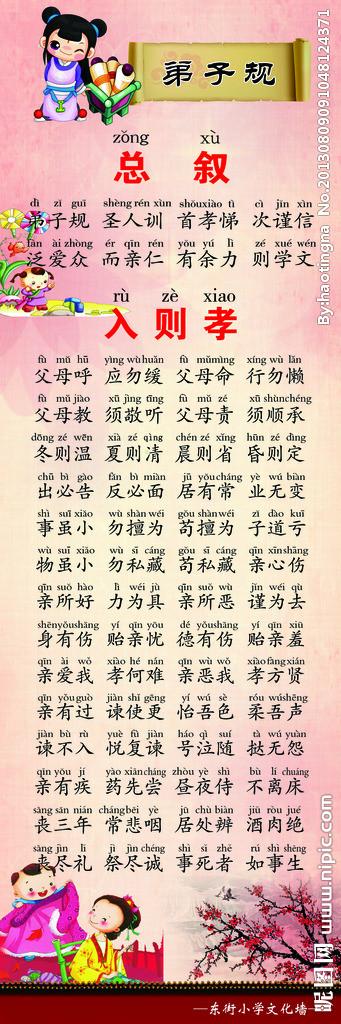 弟子规
zǒng xù
总 叙
dì zǐ guī shèng rén xùn shǒuxiào tì cì jǐn xìn
弟子规 圣人训 首孝悌 次谨信
fàn ài zhòng ér qīn rén yǒu yú lì zé xué wén
泛爱众 而亲仁 有余力 则学文
rù zè xiao
入则孝
fù mǔ hū yìng wù huǎn fù mǔmìng xíng wù lǎn
父母呼 应勿缓 父母命 行勿懒
fù mǔ jiào xū jìng tīng fù mǔ zé xū shùnchéng
父母教 须敬听 父母责 须顺承
dōng zé wēn xià zé qìng chén zé xǐng hūn zé dìng
冬则温 夏则清 晨则省 昏则定
chū bì gào fǎn bì miàn jū yǒucháng yè wú biàn
出必告 反必面 居有常 业无变
shì suī xiǎo wù shàn wéi gǒu shàn wéi zǐ dào kuī
事虽小 勿擅为 苟擅为 子道亏
wù suī xiǎo wù sī cáng gǒu sī cáng qīn xīnshāng
物虽小 勿私藏 苟私藏 亲心伤
qīn suǒ hào lì wéi jù qīn suǒ wù jǐn wéi qù
亲所好 力为具 亲所恶 谨为去
shēnyǒushāng yí qīn yōu dé yǒushāng yí qīn xiū
身有伤 贻亲忧 德有伤 贻亲羞
qīn ài wǒ xiào hé nán qīn wù wǒ xiàofāngxián
亲爱我 孝何难 亲恶我 孝方贤
qīn yǒuguò jiàn shǐ gēng yí wú sè róu wúshēng
亲有过 谏使更 怡吾色 柔吾声
jiàn bù rù yuè fù jiàn háo qì suí tà wú yuàn
谏不入 悦复谏 号泣随 挞无怨
qīn yǒu jí yào xiāncháng zhòu yè shì bù lí chuáng
亲有疾 药先尝 昼夜侍 不离床
sāng sān nián cháng bēi yè jū chù biàn jiǔ ròu jué
丧三年 常悲咽 居处辨 酒肉绝
sàng jìn lǐ jì jìn chéng shì sǐ zhě rú shì shēng
丧尽礼 祭尽诚 事死者 如事生
—东街小学文化墙
By:haotingna No.20130809091048124371
昵图网 www.nipic.com